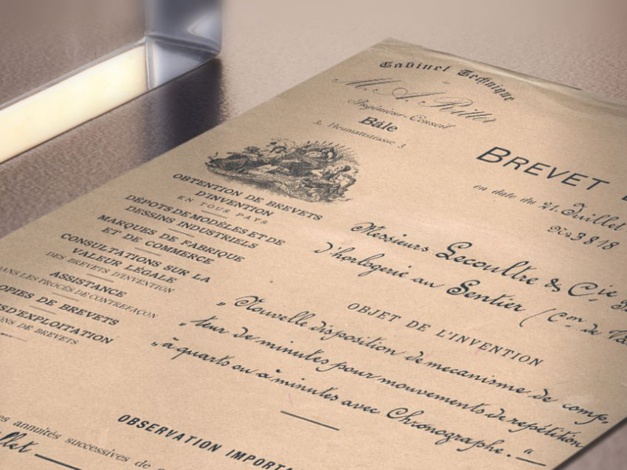 Cabinet Technique
M. A. Ritter
Ingénieur-Conseil
Bâle
OBTENTION DE BREVETS
D'INVENTION
EN TOUS PAYS
DÉPÔTS DE MODÈLES ET DE
DESSINS INDUSTRIELS
MARQUES DE FABRIQUE
ET DE COMMERCE
CONSULTATIONS SUR LA
VALEUR LÉGALE
DES BREVETS D'INVENTION
ASSISTANCE
DANS LES PROCÈS DE CONTREFAÇON
OPIES DE BREVETS
S D'EXPLOITATION
DE BREVETS
BREVET
en date du 21 Juillet
No 3818
Messieurs Lecoultre & Cie
d'horlogerie au Sentier (Con de
OBJET DE L'INVENTION
„Nouvelle disposition de mecanisme de comp-
„teur de minutes pour mouvements de repétition
„à quarts ou à minutes avec Chronographe. „
OBSERVATION IMPORTA
es annuités successives de
llet